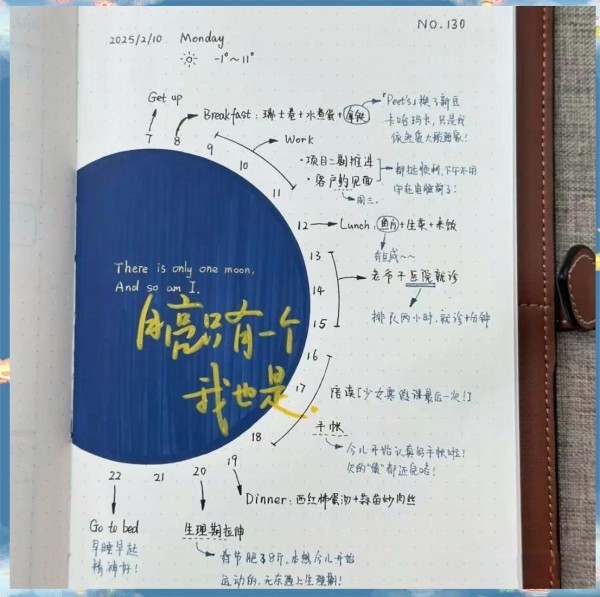 NO.130
2025/2/10 Monday
-1°~11°
Get up
7
8
Breakfast: 瑞士卷+水煮蛋+拿铁
「Peet's」换了新豆
9
Work
10
11
·项目二期推进
·客户约见面
周三.
都挺顺利,下午不用
12
Lunch: 鱼片+生菜+米饭
有巨咸~~
13
14
15
老爷子医院就诊
排队两小时,就诊十分钟
There is only one moon,
And so am I.
月亮只有一个
我也是.
16
17
陪读[少女寒假课最后一次!]
18
手帐
今儿开始认真写手帐啦!
欠的"债"都还完啦!
19
Dinner: 西红柿蛋汤+蒜苗炒肉丝
20
生理期拉伸
春节肥了8斤,本想今儿开始
运动的,元东遇上生理期!
21
22
Go to bed
早睡早起
精神好!